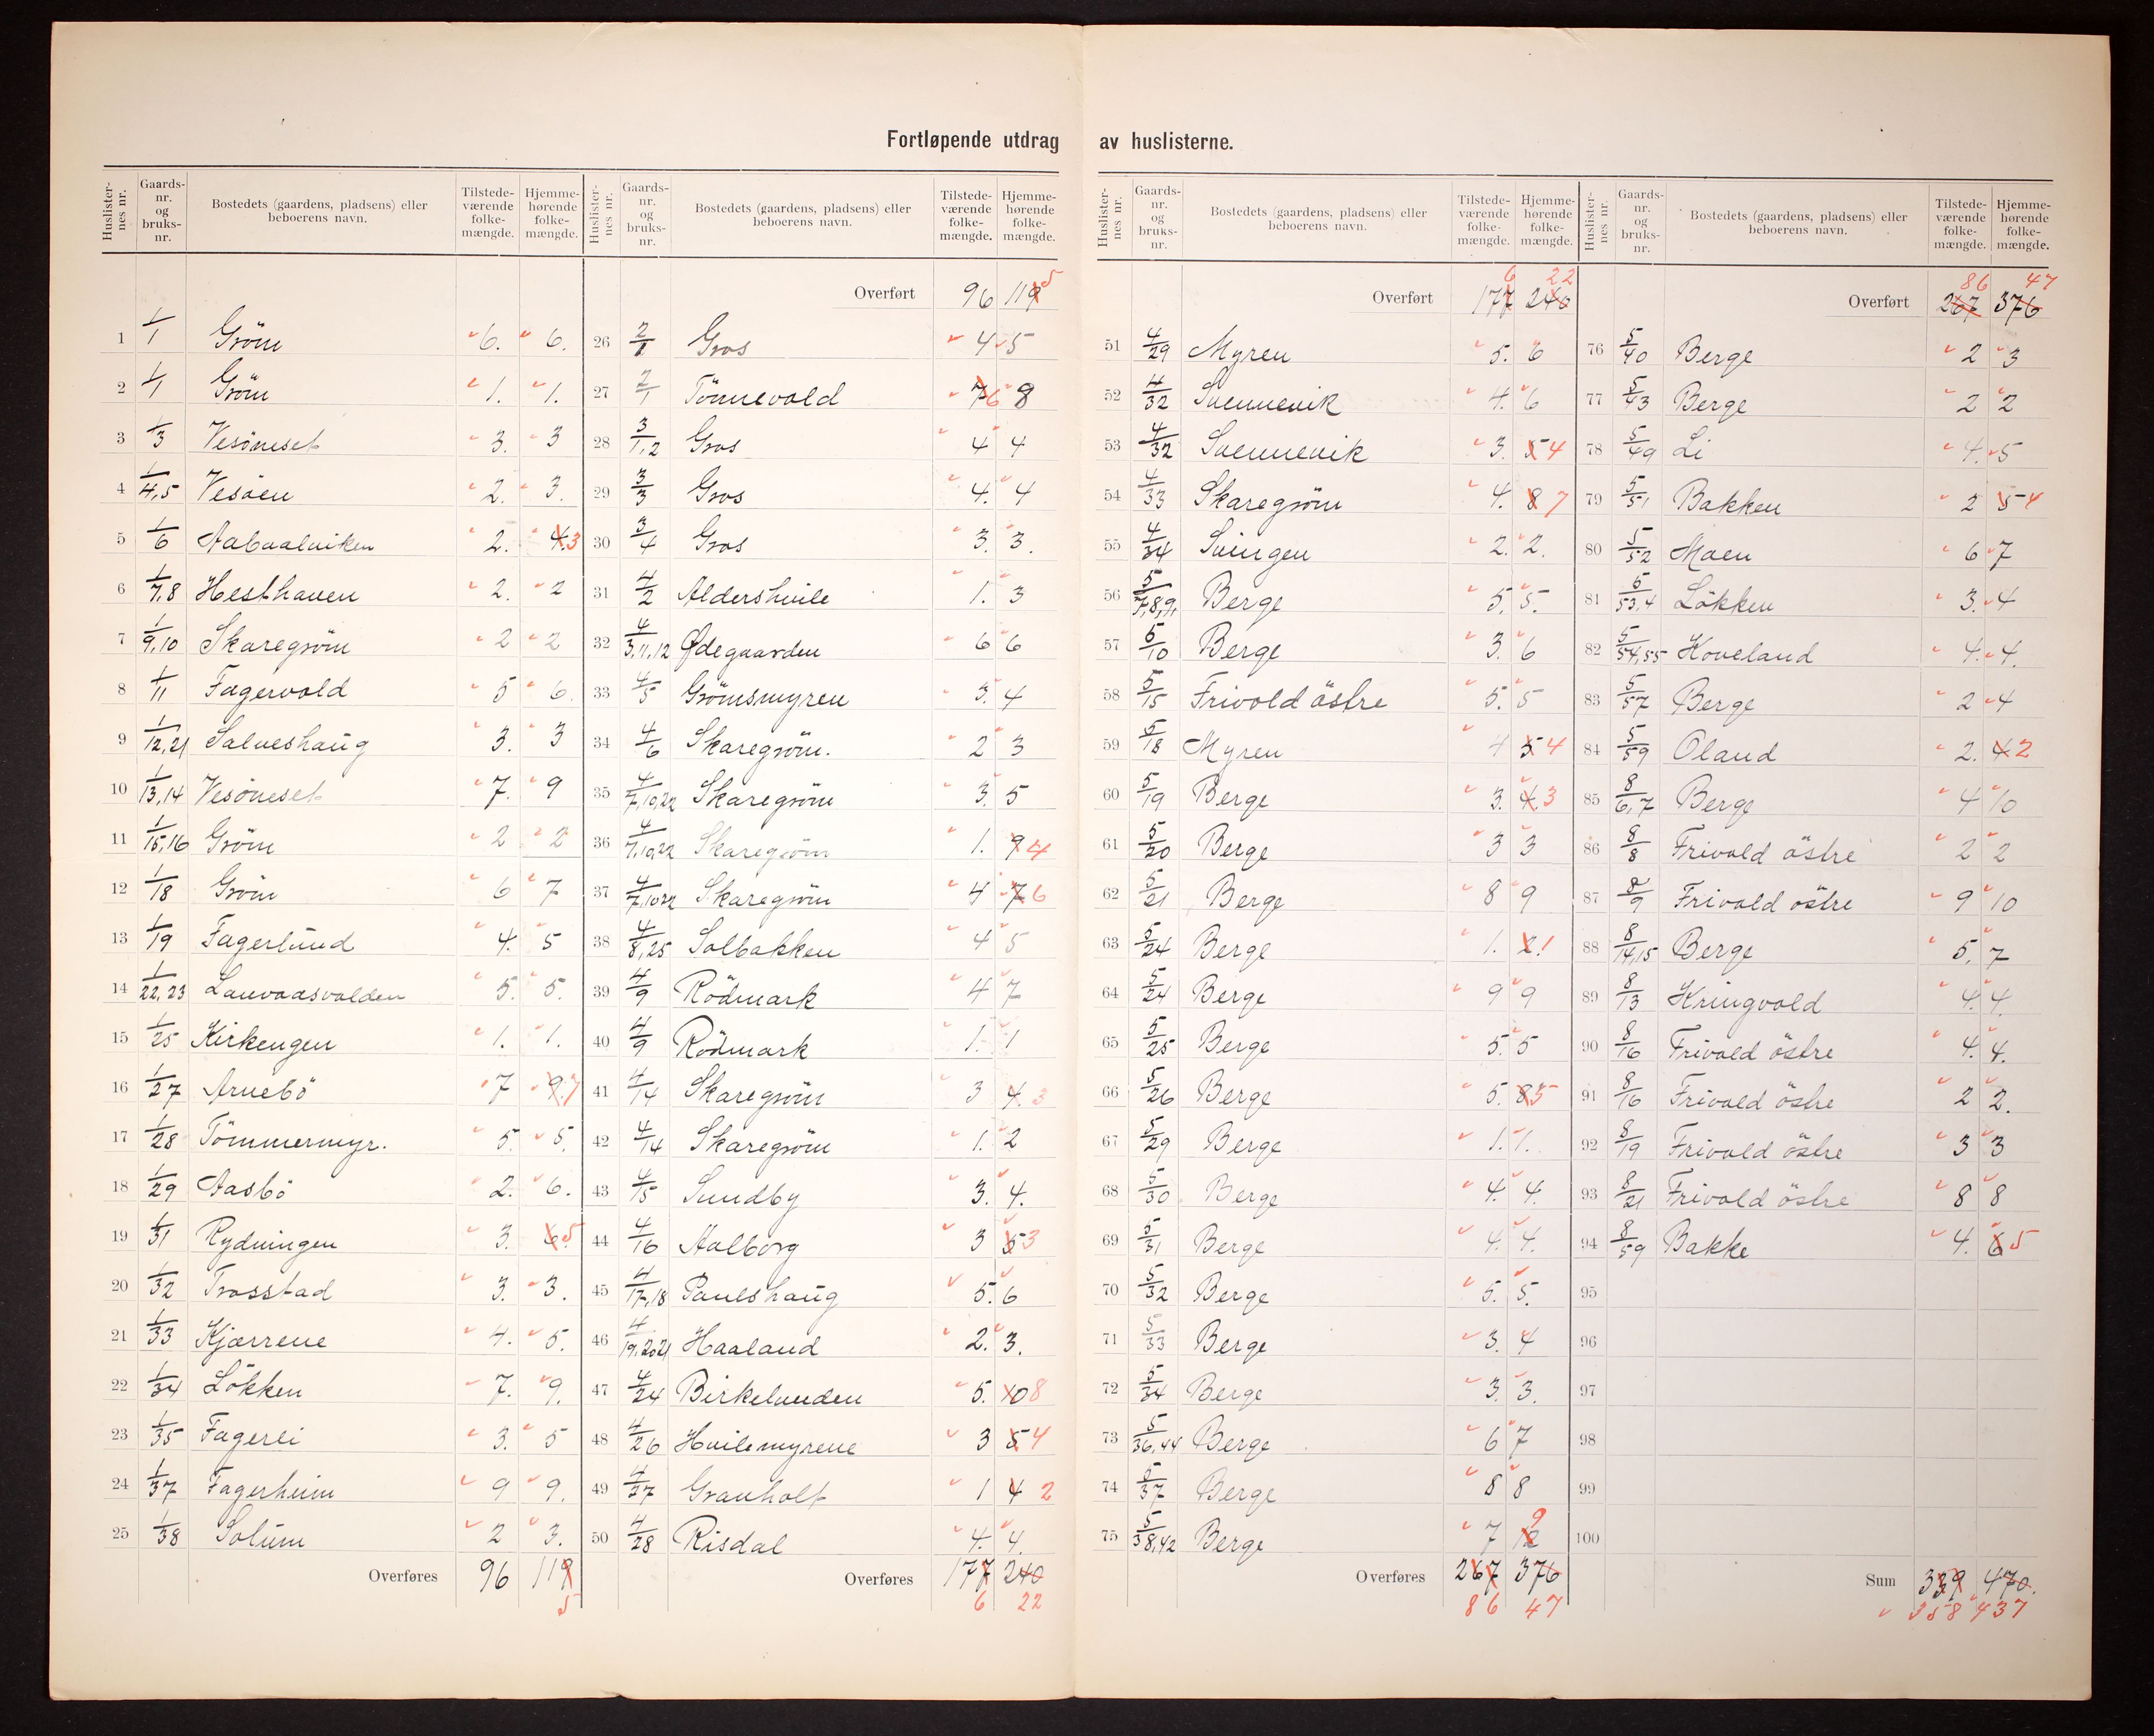 Fortløpende utdrag av huslisterne.
Huslisternes nr. Gaards-nr. og bruks-nr. Bostedets (gaardens, pladsens) eller beboerens navn. Tilstedeværende folkemængde. Hjemmehørende folkemængde.
1 1/1 Gröm 6. 6.
2 1/1 Gröm 1. 1.
3 1/3 Vesöneset 3. 3
4 1/4,5 Vesöen 2. 3.
5 1/6 Aabaalviken 2. 4 3
6 1/7,8 Hesthaven 2. 2
7 1/9,10 Skaregröm 2 2
8 1/11 Fagervold 5 6.
9 1/12,21 Salveshaug 3. 3
10 1/13,14 Vesöneset 7. 9
11 1/15,16 Gröm 2 2
12 1/18 Gröm 6 7
13 1/19 Fagerlund 4. 5
14 1/22,23 5. 5.
15 1/25 Kirkengen 1. 1.
16 1/27 Arnebö 7 9. 7
17 1/28 Tömmermyr. 5. 5.
18 1/29 Aasbö 2. 6.
19 1/31 Rydningen 3. 6. 5
20 1/32 Trosstad 3. 3.
21 1/33 Kjærrene 4. 5.
22 1/34 Lökken 7. 9.
23 1/35 Fagerli 3. 5
24 1/37 Fagerheim 9 9.
25 1/38 Solum 2 3.
Overføres 96 119
5
Huslisternes nr. Gaards-nr. og bruks-nr. Bostedets (gaardens, pladsens) eller beboerens navn. Tilstedeværende folkemængde. Hjemmehørende folkemængde.
Overført 96 119 5
26 2/1 Gros 4 5
27 2/1 Tönnevold 7 6 8
28 3/1,2 Gros 4 4
29 3/3 Gros 4. 4
30 3/4 Gros 3. 3.
31 4/2 Aldershvile 1. 3
32 4/3,11,12 Ødegaarden 6 6
33 4/5 Grömsmyren 3. 4
34 4/6 Skaregröm. 2 3
35 4/7,10,22 Skaregröm 3. 5
36 4/7,10,22 Skaregröm 1. 9 4
37 4/7,10,22 Skaregröm 4 7 6
38 4/8,25 Solbakken 4 5
39 4/9 Rödmark 4 7
40 4/9 Rödmark 1. 1
41 4/14 Skaregröm 3 4. 3
42 4/14 Skaregröm 1. 2
43 4/15 Sundby 3. 4.
44 4/16 Aalborg 3 5 3
45 4/17,18 Paulshaug 5. 6
46 4/19,20,21 Haaland 2. 3.
47 4/24 Birkelunden 5. 10 8
48 4/26 Hvilemyrene 3 5 4
49 4/27 Granholt 1 4 2
50 4/28 Risdal 4. 4.
Overføres 177 240
6 22
Huslisternes nr. Gaards-nr. og bruks-nr. Bostedets (gaardens, pladsens) eller beboerens navn. Tilstedeværende folkemængde. Hjemmehørende folkemængde.
6 22
Overført 177 240
51 4/29 Myren 5. 6
52 4/32 Svennevik 4. 6
53 4/32 Svennevik 3. 5 4
54 4/33 Skaregröm 4. 8 7
55 4/34 Svingen 2. 2.
56 5/7,8,9, Berge 5. 5.
57 5/10 Berge 3. 6
58 5/15 Frivold östre 5. 5
59 5/18 Myren 4 5 4
60 5/19 Berge 3. 4 3
61 5/20 Berge 3 3
62 5/21 Berge 8 9
63 5/24 Berge 1. 2 1
64 5/24 Berge 9 9
65 5/25 Berge 5. 5
66 5/26 Berge 5. 8 5
67 5/29 Berge 1. 1.
68 5/30 Berge 4. 4.
69 5/31 Berge 4. 4.
70 5/32 Berge 5. 5.
71 5/33 Berge 3. 4
72 5/34 Berge 3. 3.
73 5/36,44 Berge 6 7
74 5/37 Berge 8 8
75 5/38,42 Berge 7 12 9
Overføres 267 376
86 47
Huslisternes nr. Gaards-nr. og bruks-nr. Bostedets (gaardens, pladsens) eller beboerens navn. Tilstedeværende folkemængde. Hjemmehørende folkemængde.
86 47
Overført 267 376
76 5/40 Berge 2 3
77 5/43 Berge 2 2
78 5/49 Li 4. 5
79 5/51 Bakken 2 5 4
80 5/52 Moen 6 7
81 5/53,4 Lökken 3. 4
82 5/54,55 Hoveland 4. 4.
83 5/57 Berge 2 4
84 5/59 Oland 2. 4 2
85 8/6,7 Berge 4 10
86 8/8 Frivold östre 2 2
87 8/9 Frivold östre 9 10
88 8/14,15 Berge 5. 7
89 8/13 Kringvold 4. 4.
90 8/16 Frivold östre 4. 4.
91 8/16 Frivold östre 2 2.
92 8/19 Frivold östre 3 3
93 8/21 Frivold östre 8 8
94 8/59 Bakke 4. 6 5
95
96
97
98
99
100
Sum 339 470.
358 437